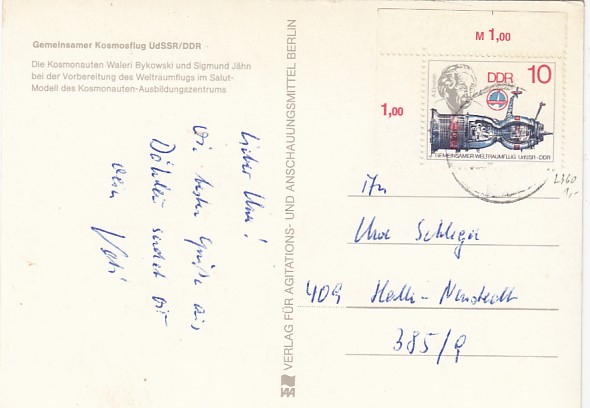 Gemeinsamer Kosmosflug UdSSR/DDR
Die Kosmonauten Waleri Bykowski und Sigmund Jähn
bei der Vorbereitung des Weltraumflugs im Salut-
Modell des Kosmonauten-Ausbildungszentrums
Lieber Uwe!
Die besten Grüße aus
sendet dir
dein Vati
VERLAG FÜR AGITATIONS- UND ANSCHAUUNGSMITTEL BERLIN
M 1,00
1,00
DDR 10
A. Einstein
GEMEINSAMER WELTRAUMFLUG UdSSR-DDR
2360
1,-
An
Uwe Schleger
409 Halle-Neustadt
385/9